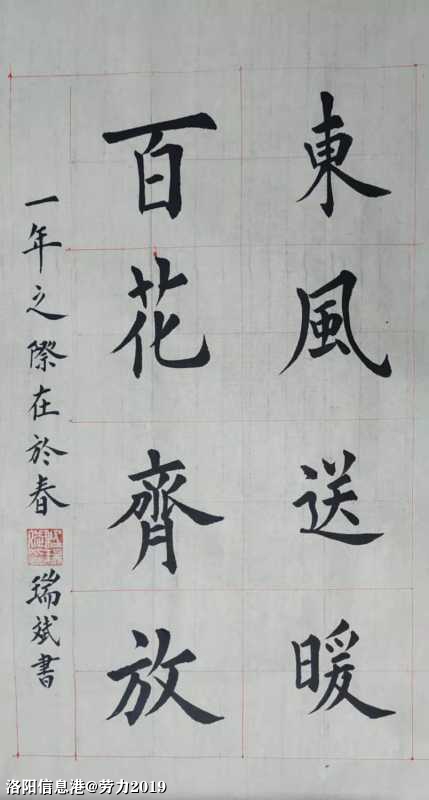 東風送暖
百花齊放
一年之際在於春
瑞斌書
洛阳信息港@劳力2019